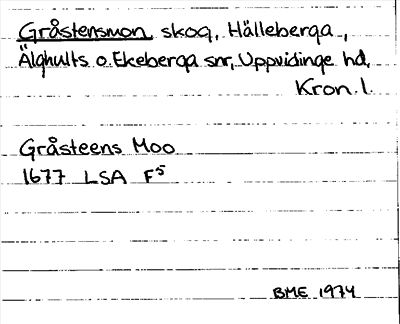 Gråstensmon skog, Hälleberga,
Älghults o. Ekeberga snr, Uppvidinge hd,
Kron. l.
Gråsteens Moo
1677 LSA F⁵
BME 1974